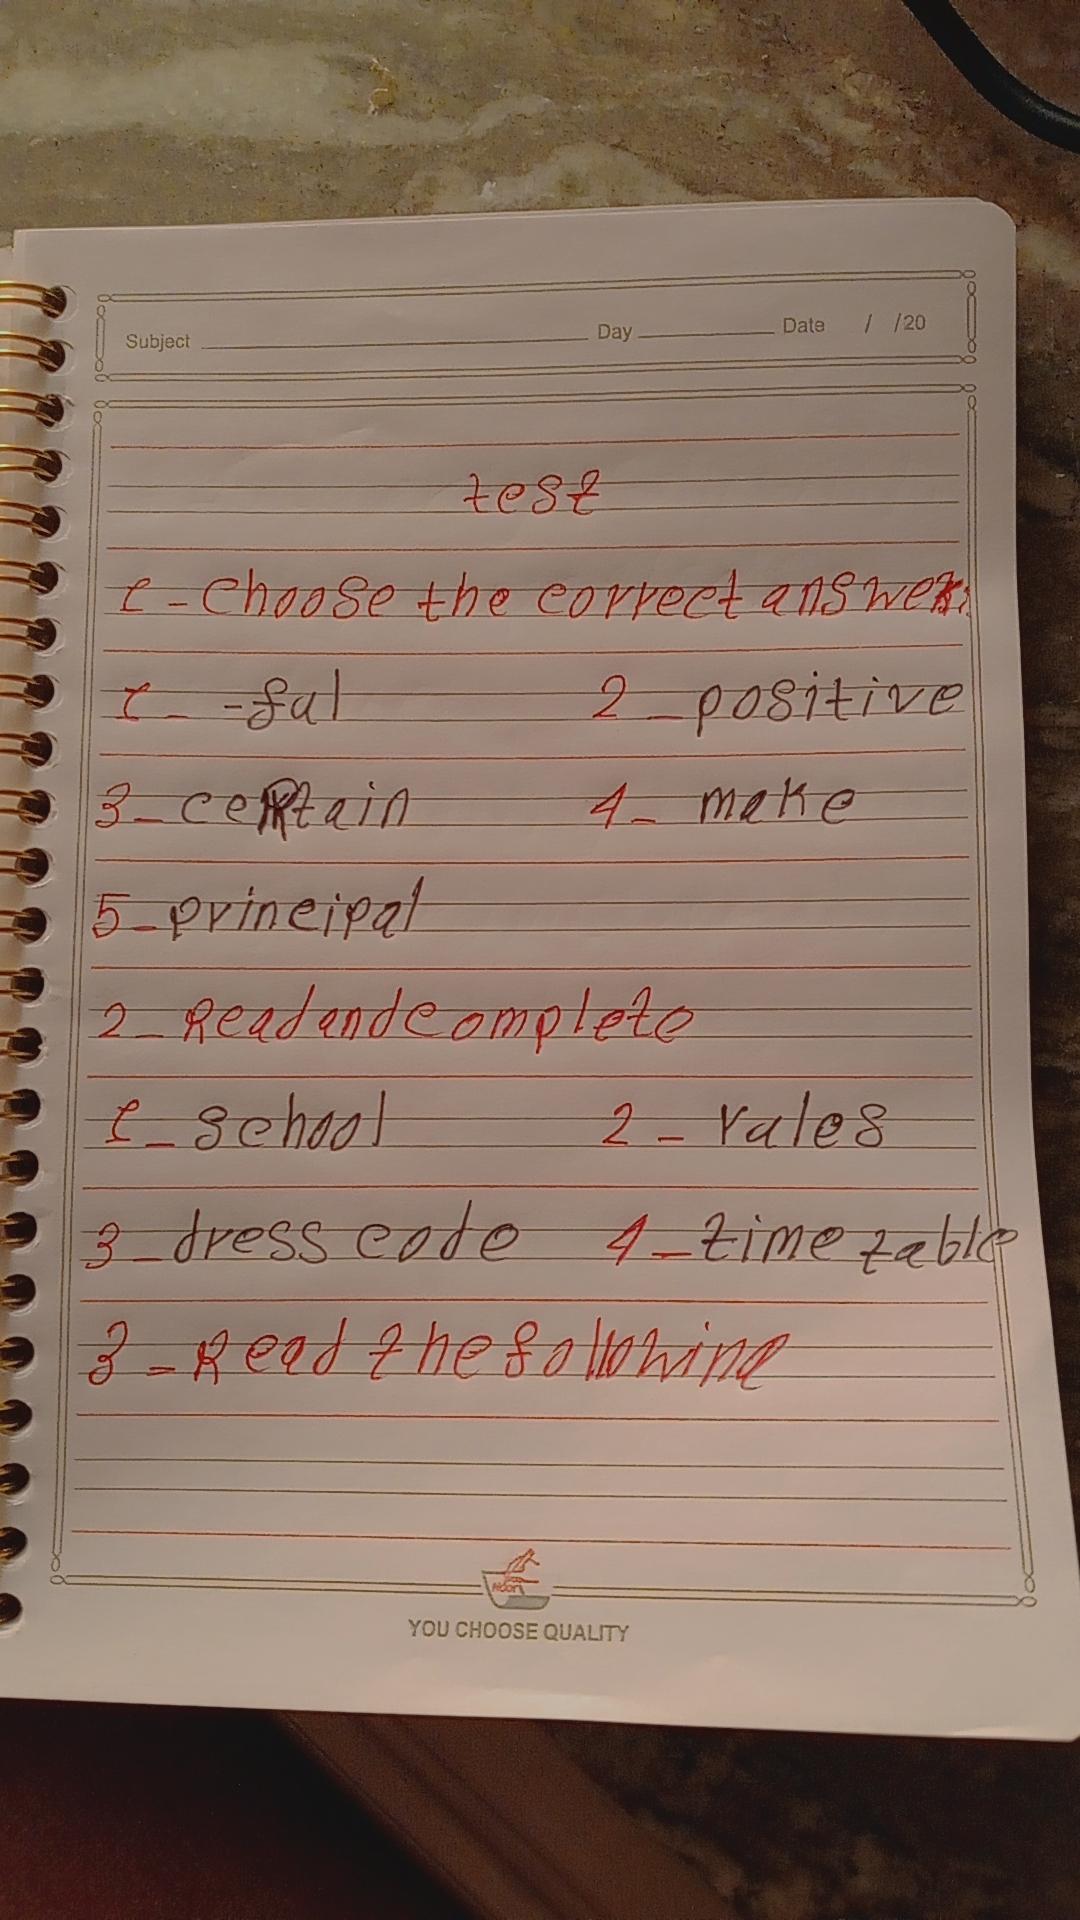 Subject Day Date / /20
test
1 - Choose the correct answer:
1 - -ful 2 - positive
3 - certain 4 - make
5 - principal
2 - Read and complete
1 - school 2 - rules
3 - dress code 4 - time table
3 - Read the following
Noor
YOU CHOOSE QUALITY